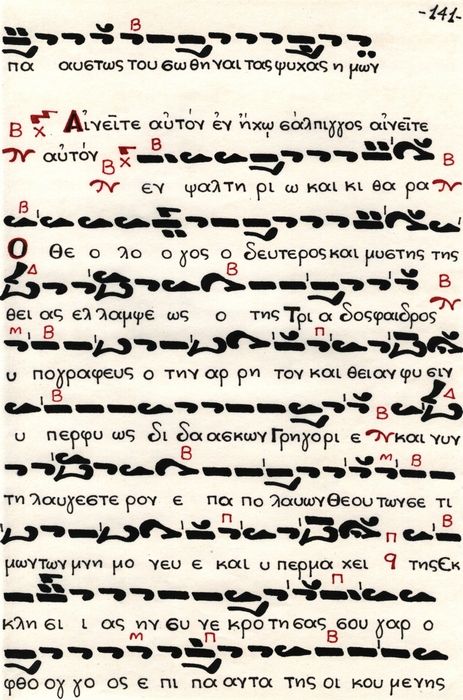 -141-
πα αυστως του σω θη ναι τας ψυχας η μων
Αἰνεῖτε αὐτόν ἐν ἤχῳ σάλπιγγος αἰνεῖτε
αὐτόν
εν ψαλτη ρι ω και κι θα ρα
Ο Θε ο λο ο γος ο δευτερος και μυστης της
θει ας ελ λαμψε ως ο της Τρι α δος φαιδρος
υ πογραφευς ο την αρ ρη τον και θειαν φυ σιν
υ περφυ ως δι δα ασκων Γρηγορι ε και νυν
τηλαυγεστε ρον ε πα πο λαυων Θεου των σε τι
μων των μνη μο νευ ε και υ περμα χει της Εκ
κλη σι ι ας ην συ νε κρο τησας σου γαρ ο
φθο ογ γο ος ε πι πα αντα της οι κου μενης